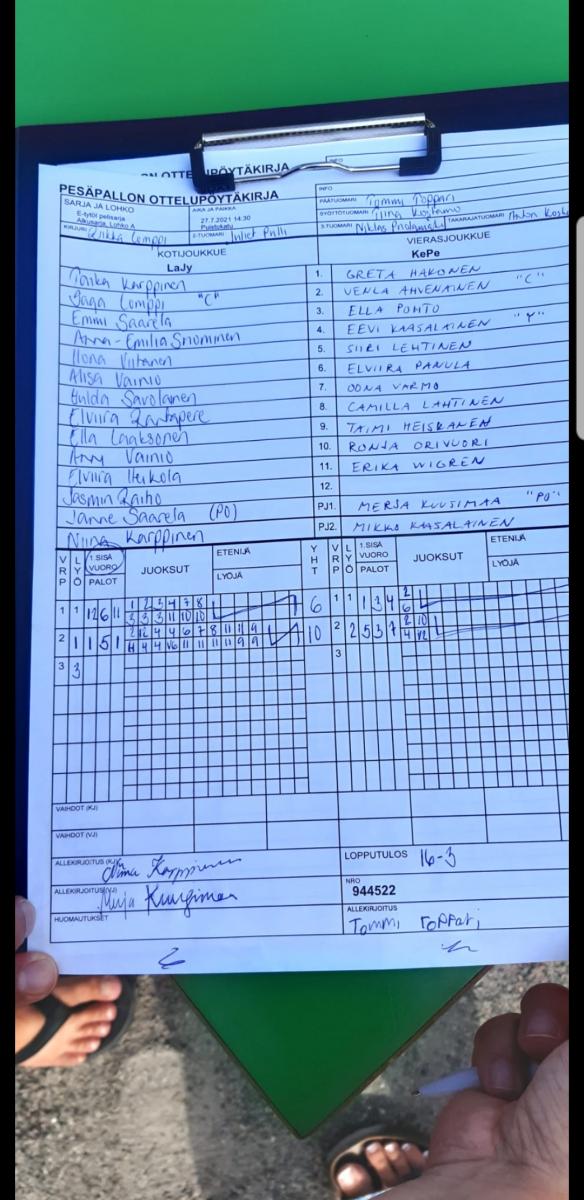 PESÄPALLON OTTELUPÖYTÄKIRJA
INFO
SARJA JA LOHKO
E-tytöt pelisarja
Alkusarja, Lohko A
AIKA JA PAIKKA
27.7.2021 14:30
Puistokatu
PÄÄTUOMARI Tommi Toppari
SYÖTTÖTUOMARI Tiina
KIRJURI Lomppi
2-TUOMARI
3-TUOMARI Niklas
TAKARAJATUOMARI Anton
KOTIJOUKKUE
LaJy
VIERASJOUKKUE
KePe
Karppinen
Saga Lomppi "C"
Emmi Saarela
Anna-Emilia Snommen
Ilona Viitanen
Alisa Vainio
Hulda Savolainen
Elviira Rantapere
Ella Laaksonen
Anni Vainio
Elviira Heikola
Jasmin Raiho
Janne Saarela (PO)
Niina Karppinen
1. GRETA HAKONEN
2. VENLA AHVENAINEN "C"
3. ELLA POHTO
4. EEVI KAASALAINEN "V"
5. SIIRI LEHTINEN
6. ELVIIRA PANULA
7. OONA VARMO
8. CAMILLA LAHTINEN
9. TAIMI HEISKANEN
10. RONJA ORIVUORI
11. ERIKA WIGREN
12.
PJ1. MERJA KUUSIMAA "PO"
PJ2. MIKKO KAASALAINEN
VRP LYÖ 1.SISÄ VUORO PALOT JUOKSUT ETENIJÄ LYÖJÄ YHT
VRP LYÖ 1.SISÄ VUORO PALOT JUOKSUT ETENIJÄ LYÖJÄ
1 1 12 6 11 1 2 3 4 7 8 6
3 3 3 11 10 10
1 1 1 3 4 2
6
2 1 1 5 1 2 12 4 4 6 7 8 11 11 9 10
2 2 5 3 7 2 10
3 3
3
VAIHDOT (KJ)
VAIHDOT (VJ)
ALLEKIRJOITUS (KJ) Niina Karppinen
LOPPUTULOS 16-3
ALLEKIRJOITUS (VJ) Merja Kuusimaa
NRO
944522
HUOMAUTUKSET
ALLEKIRJOITUS
Tommi Toppari